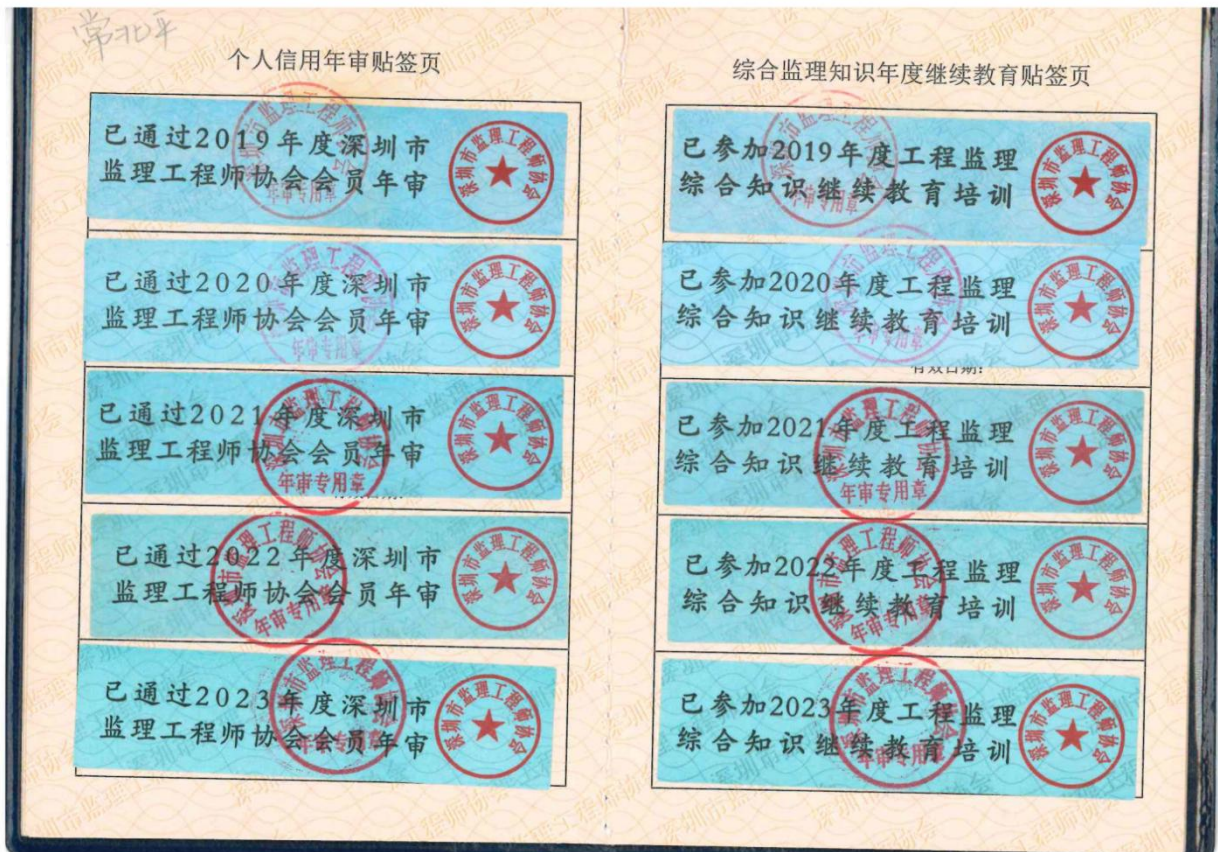 常北平
个人信用年审贴签页
已通过2019年度深圳市
监理工程师协会会员年审
深圳市监理工程师协会
深圳市监理工程师协会
年审专用章
已通过2020年度深圳市
监理工程师协会会员年审
深圳市监理工程师协会
深圳市监理工程师协会
年审专用章
已通过2021年度深圳市
监理工程师协会会员年审
深圳市监理工程师协会
深圳市监理工程师协会
年审专用章
已通过2022年度深圳市
监理工程师协会会员年审
深圳市监理工程师协会
深圳市监理工程师协会
年审专用章
已通过2023年度深圳市
监理工程师协会会员年审
深圳市监理工程师协会
深圳市监理工程师协会
年审专用章
综合监理知识年度继续教育贴签页
已参加2019年度工程监理
综合知识继续教育培训
深圳市监理工程师协会
深圳市监理工程师协会
年审专用章
已参加2020年度工程监理
综合知识继续教育培训
深圳市监理工程师协会
深圳市监理工程师协会
年审专用章
有效日期:
已参加2021年度工程监理
综合知识继续教育培训
深圳市监理工程师协会
深圳市监理工程师协会
年审专用章
已参加2022年度工程监理
综合知识继续教育培训
深圳市监理工程师协会
深圳市监理工程师协会
年审专用章
已参加2023年度工程监理
综合知识继续教育培训
深圳市监理工程师协会
深圳市监理工程师协会
年审专用章